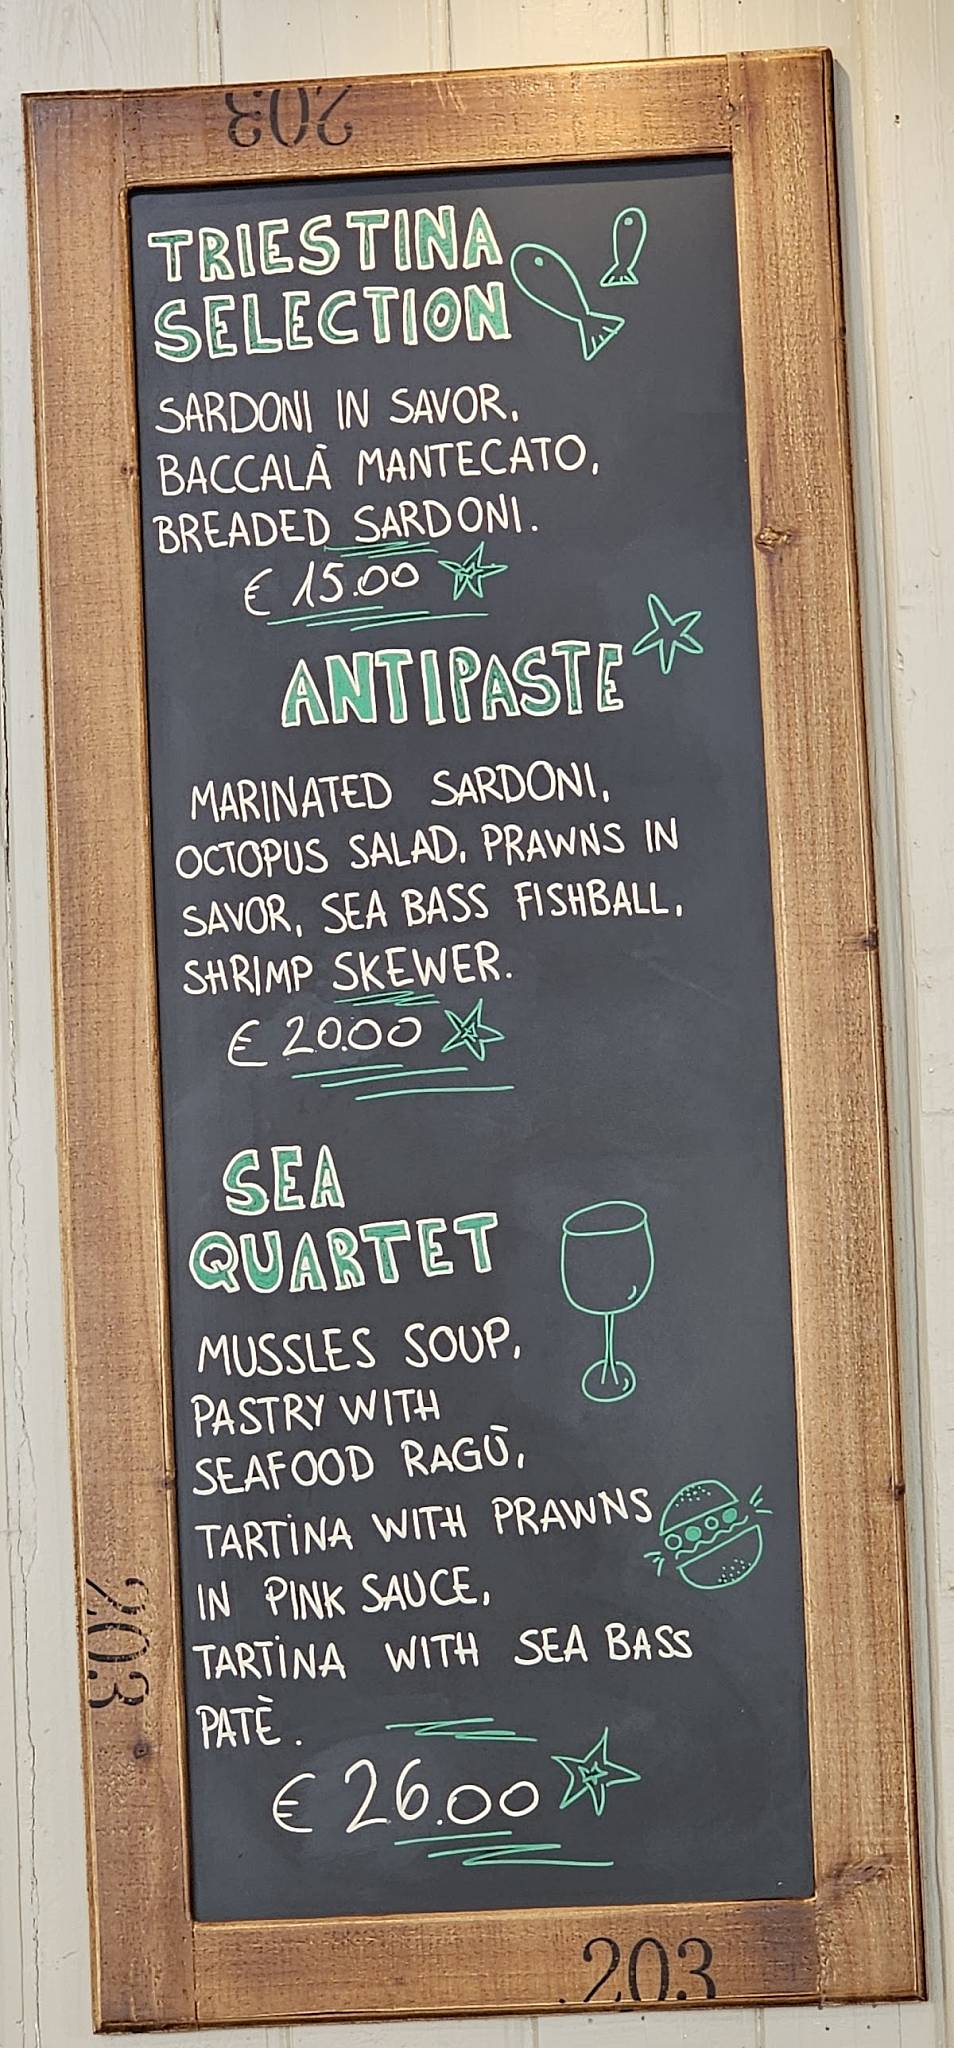 203
TRIESTINA
SELECTION
SARDONI IN SAVOR,
BACCALÀ MANTECATO,
BREADED SARDONI.
€ 15.00
ANTIPASTE
MARINATED SARDONI,
OCTOPUS SALAD, PRAWNS IN
SAVOR, SEA BASS FISHBALL,
SHRIMP SKEWER.
€ 20.00
SEA
QUARTET
MUSSLES SOUP,
PASTRY WITH
SEAFOOD RAGÙ,
TARTINA WITH PRAWNS
IN PINK SAUCE,
TARTINA WITH SEA BASS
PATÈ.
€ 26.00
203
203